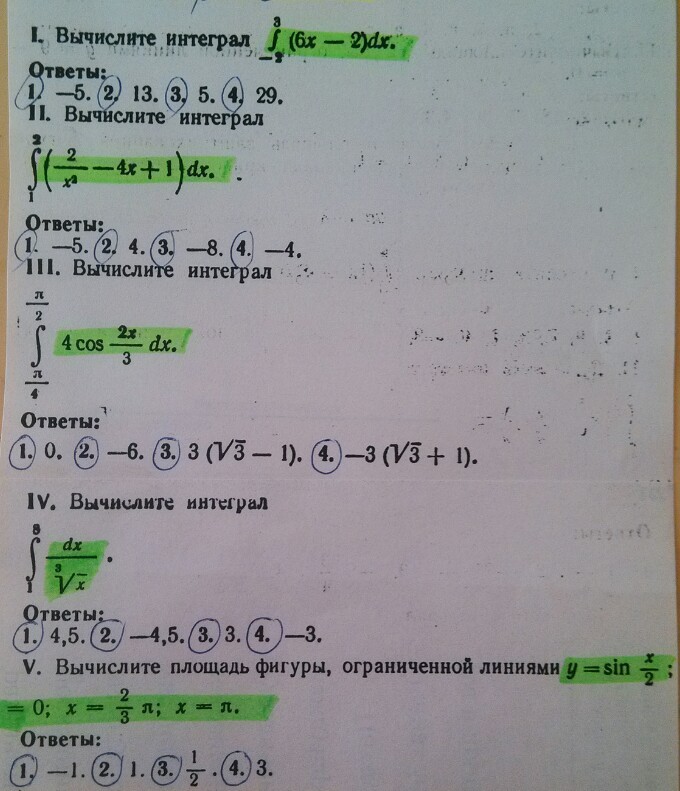 I. Вычислите интеграл ∫₋₂³ (6x − 2)dx.
Ответы:
1. −5. 2. 13. 3. 5. 4. 29.
II. Вычислите интеграл
∫₁² (2/x² − 4x + 1) dx.
Ответы:
1. −5. 2. 4. 3. −8. 4. −4.
III. Вычислите интеграл
∫_{π/4}^{π/2} 4 cos 2x/3 dx.
Ответы:
1. 0. 2. −6. 3. 3 (√3 − 1). 4. −3 (√3 + 1).
IV. Вычислите интеграл
∫₁⁸ dx/∛x.
Ответы:
1. 4,5. 2. −4,5. 3. 3. 4. −3.
V. Вычислите площадь фигуры, ограниченной линиями y = sin x/2;
= 0; x = 2/3 π; x = π.
Ответы:
1. −1. 2. 1. 3. 1/2. 4. 3.